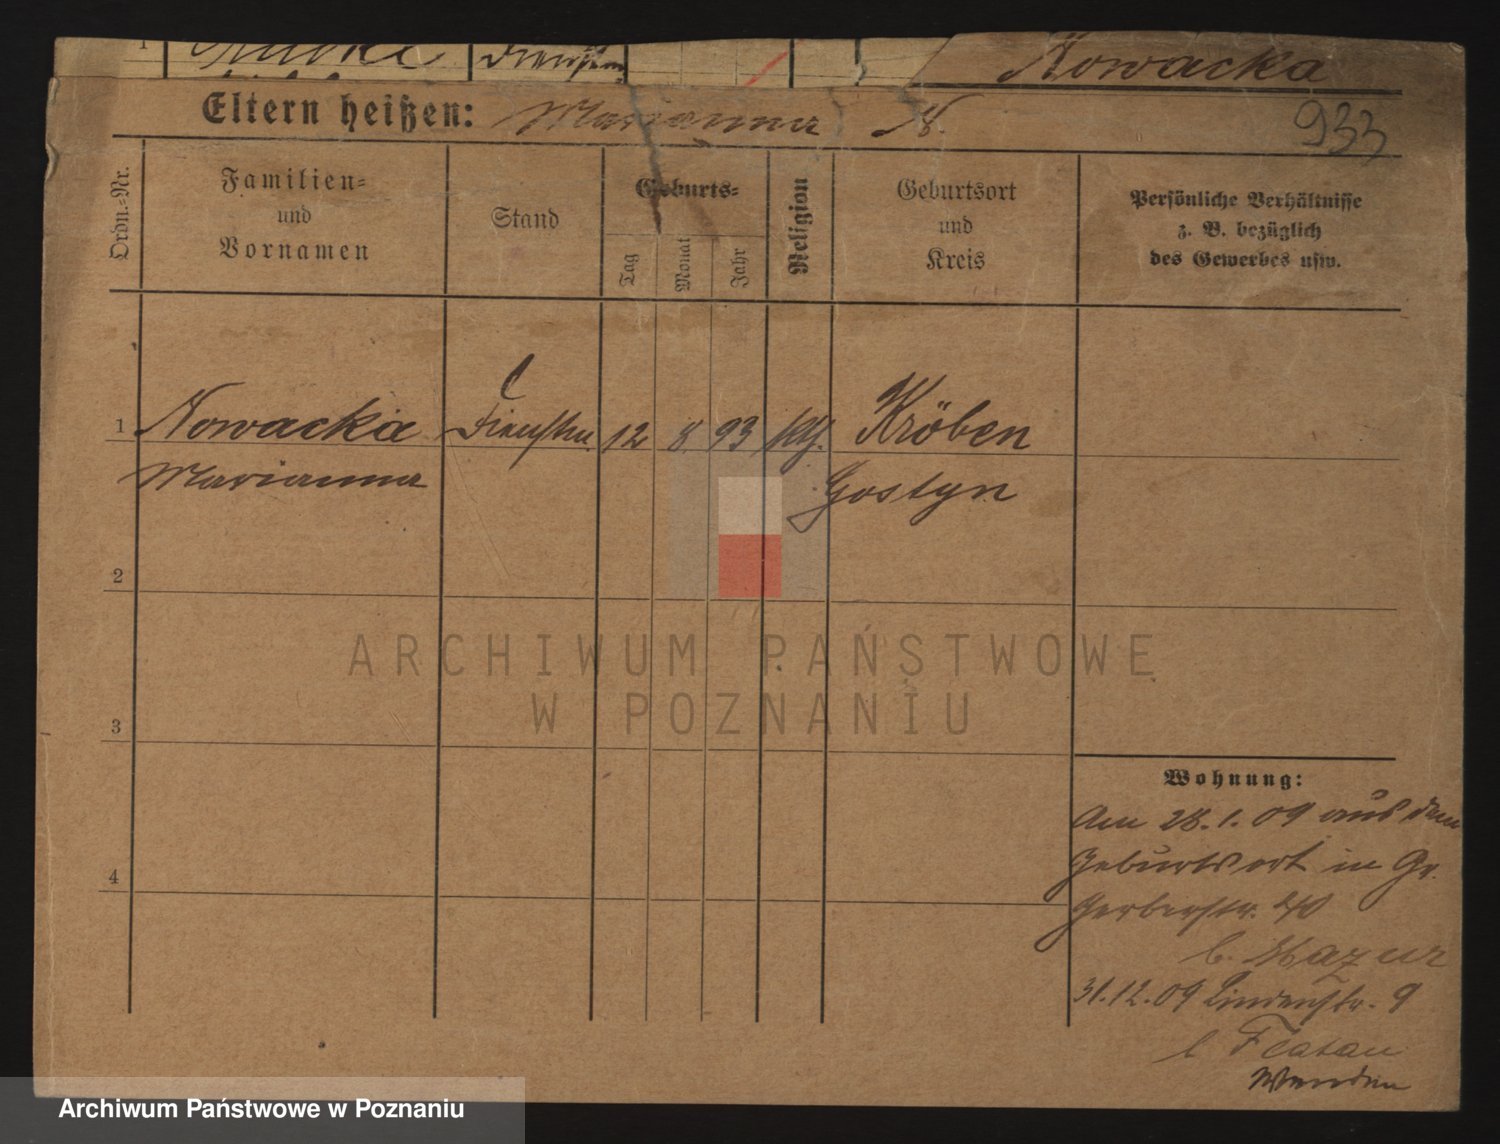 1
Nowacka
Eltern heißen: Marianna N.
933
Ordn.-Nr.
Familien-
und
Vornamen
Stand
Geburts-
Tag
Monat
Jahr
Religion
Geburtsort
und
Kreis
Persönliche Verhältnisse
z. B. bezüglich
des Gewerbes usw.
1 Nowacka 12 8 93 kth. Kröben
Marianna Gostyn
2
3
4
ARCHIWUM PAŃSTWOWE
W POZNANIU
Wohnung:
Am 28.1.09 aus dem
Geburtsort in Gr.
Gerberstr. 40
b. Mazur
31.12.09 Lindenstr. 9
Wenden
Archiwum Państwowe w Poznaniu